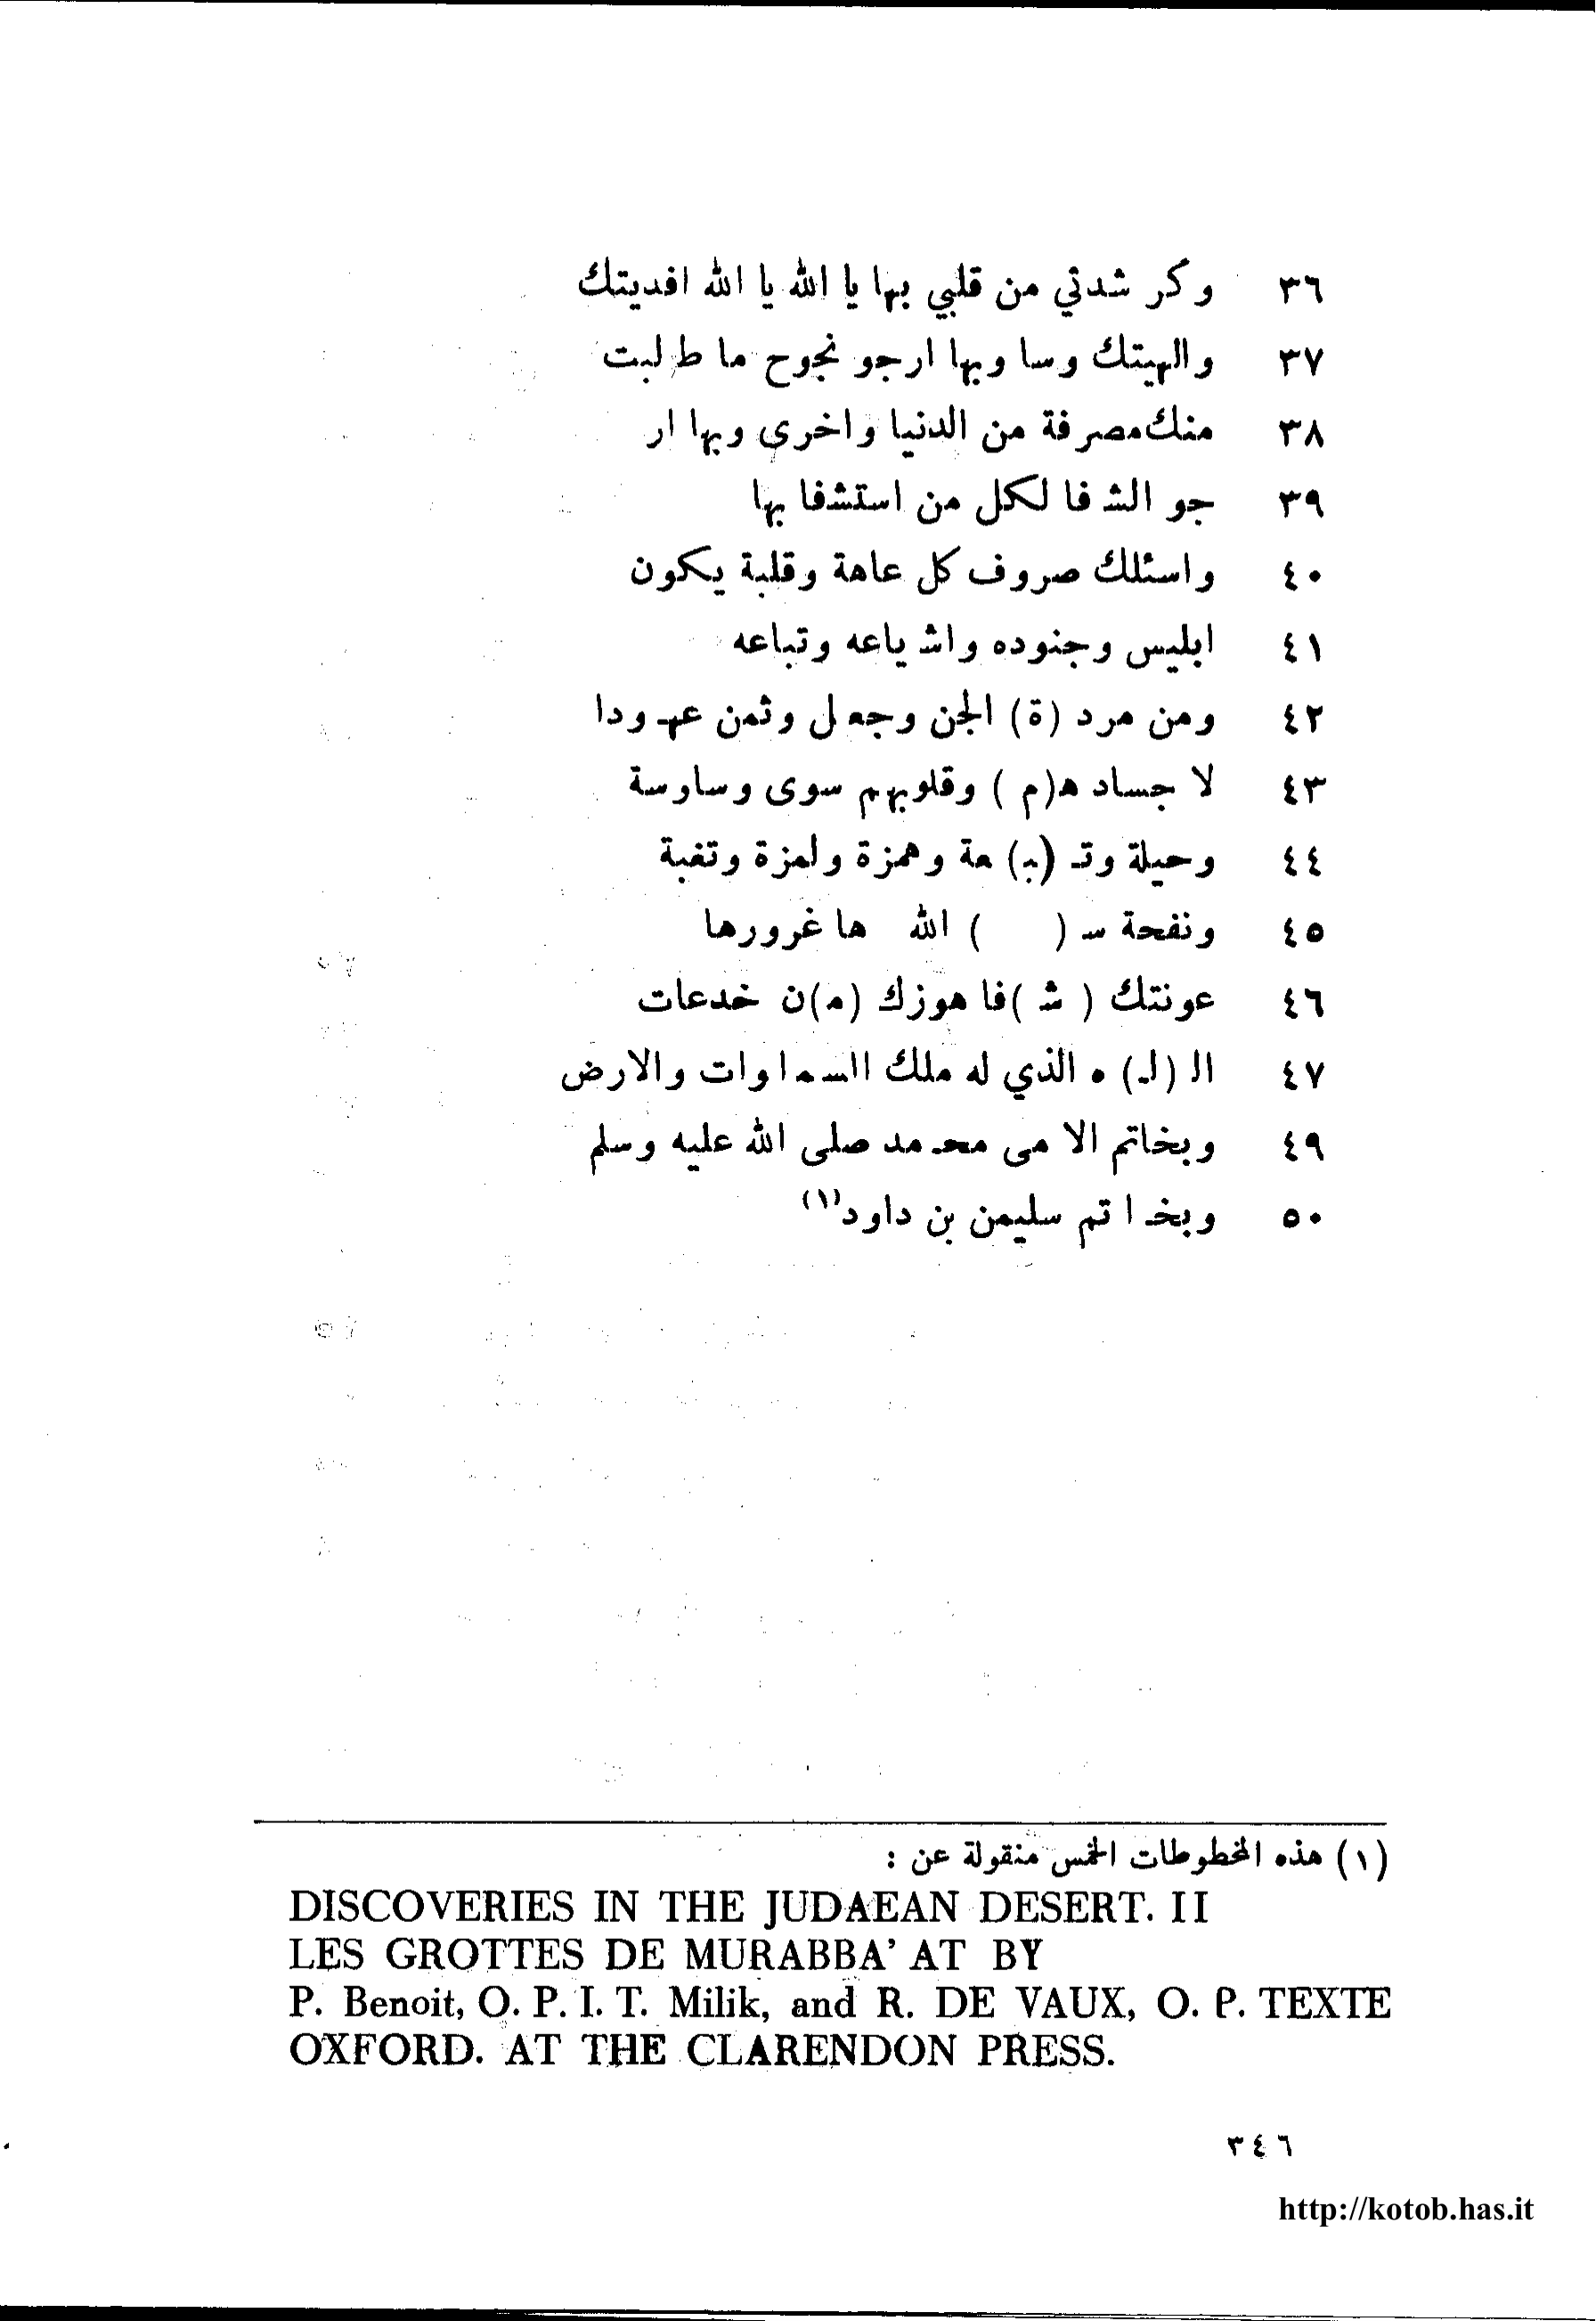 ٣٦ وكر شدتي من قلبي بها يا الله يا الله افديتك
٣٧ والهيتك وسا وبها ارجو نجوح ما طلبت
٣٨ منك مصرفة من الدنيا واخرى وبها ار
٣٩ جو الشفا لكل من استشفا بها
٤٠ واسئلك صروف كل عاهة وقلبة يكون
٤١ ابليس وجنوده واشياعه وتباعه
٤٢ ومن مرد (ة) الجن وجعل وثمن عهودا
٤٣ لا جساد ه(م) وقلوبهم سوى وساوسة
٤٤ وحيلة وتـ (بـ) عة وهمزة ولمزة وتغبة
٤٥ ونفحة سـ ( ) الله ها غرورها
٤٦ عونتك ( شـ )فا هوزك (مـ)ن خدعات
٤٧ الـ (لـ) ه الذي له ملك السماوات والارض
٤٩ وبخاتم الامى محمد صلى الله عليه وسلم
٥٠ وبخاتم سليمن بن داود(١)
(١) هذه المخطوطات الخمس منقولة عن :
DISCOVERIES IN THE JUDAEAN DESERT. II
LES GROTTES DE MURABBA' AT BY
P. Benoit, O. P. I. T. Milik, and R. DE VAUX, O. P. TEXTE
OXFORD. AT THE CLARENDON PRESS.
٣٤٦
http://kotob.has.it